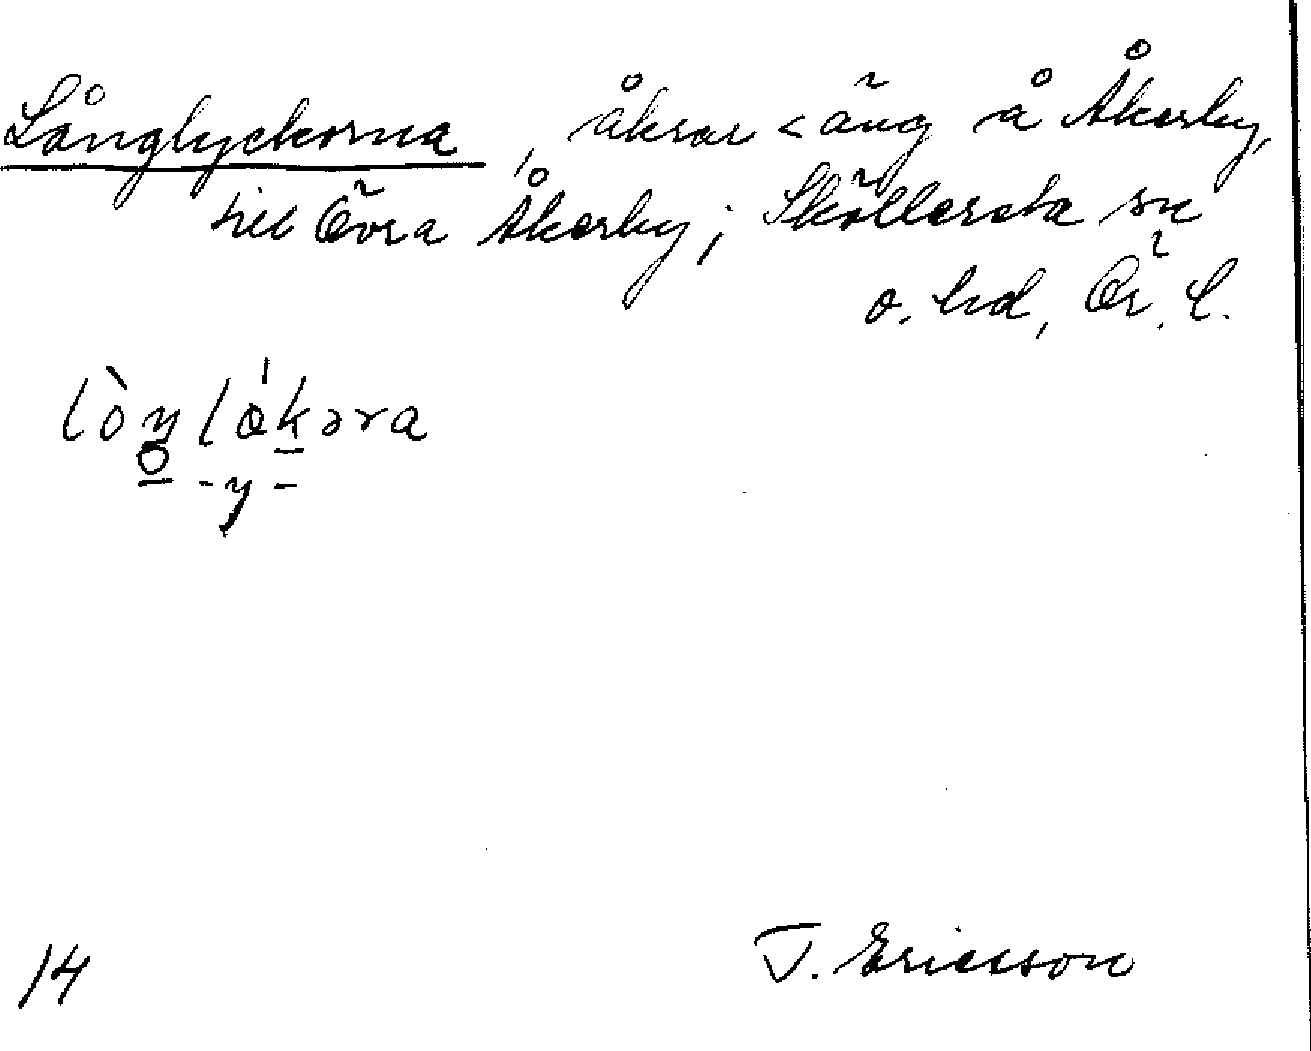 Långlyckorna, åkrar < äng å Åkerby,
till Övra Åkerby; Sköllersta sn
o. hd, Ör. l.
lòŋlǿkəra
o -y-
14
T. Ericsson